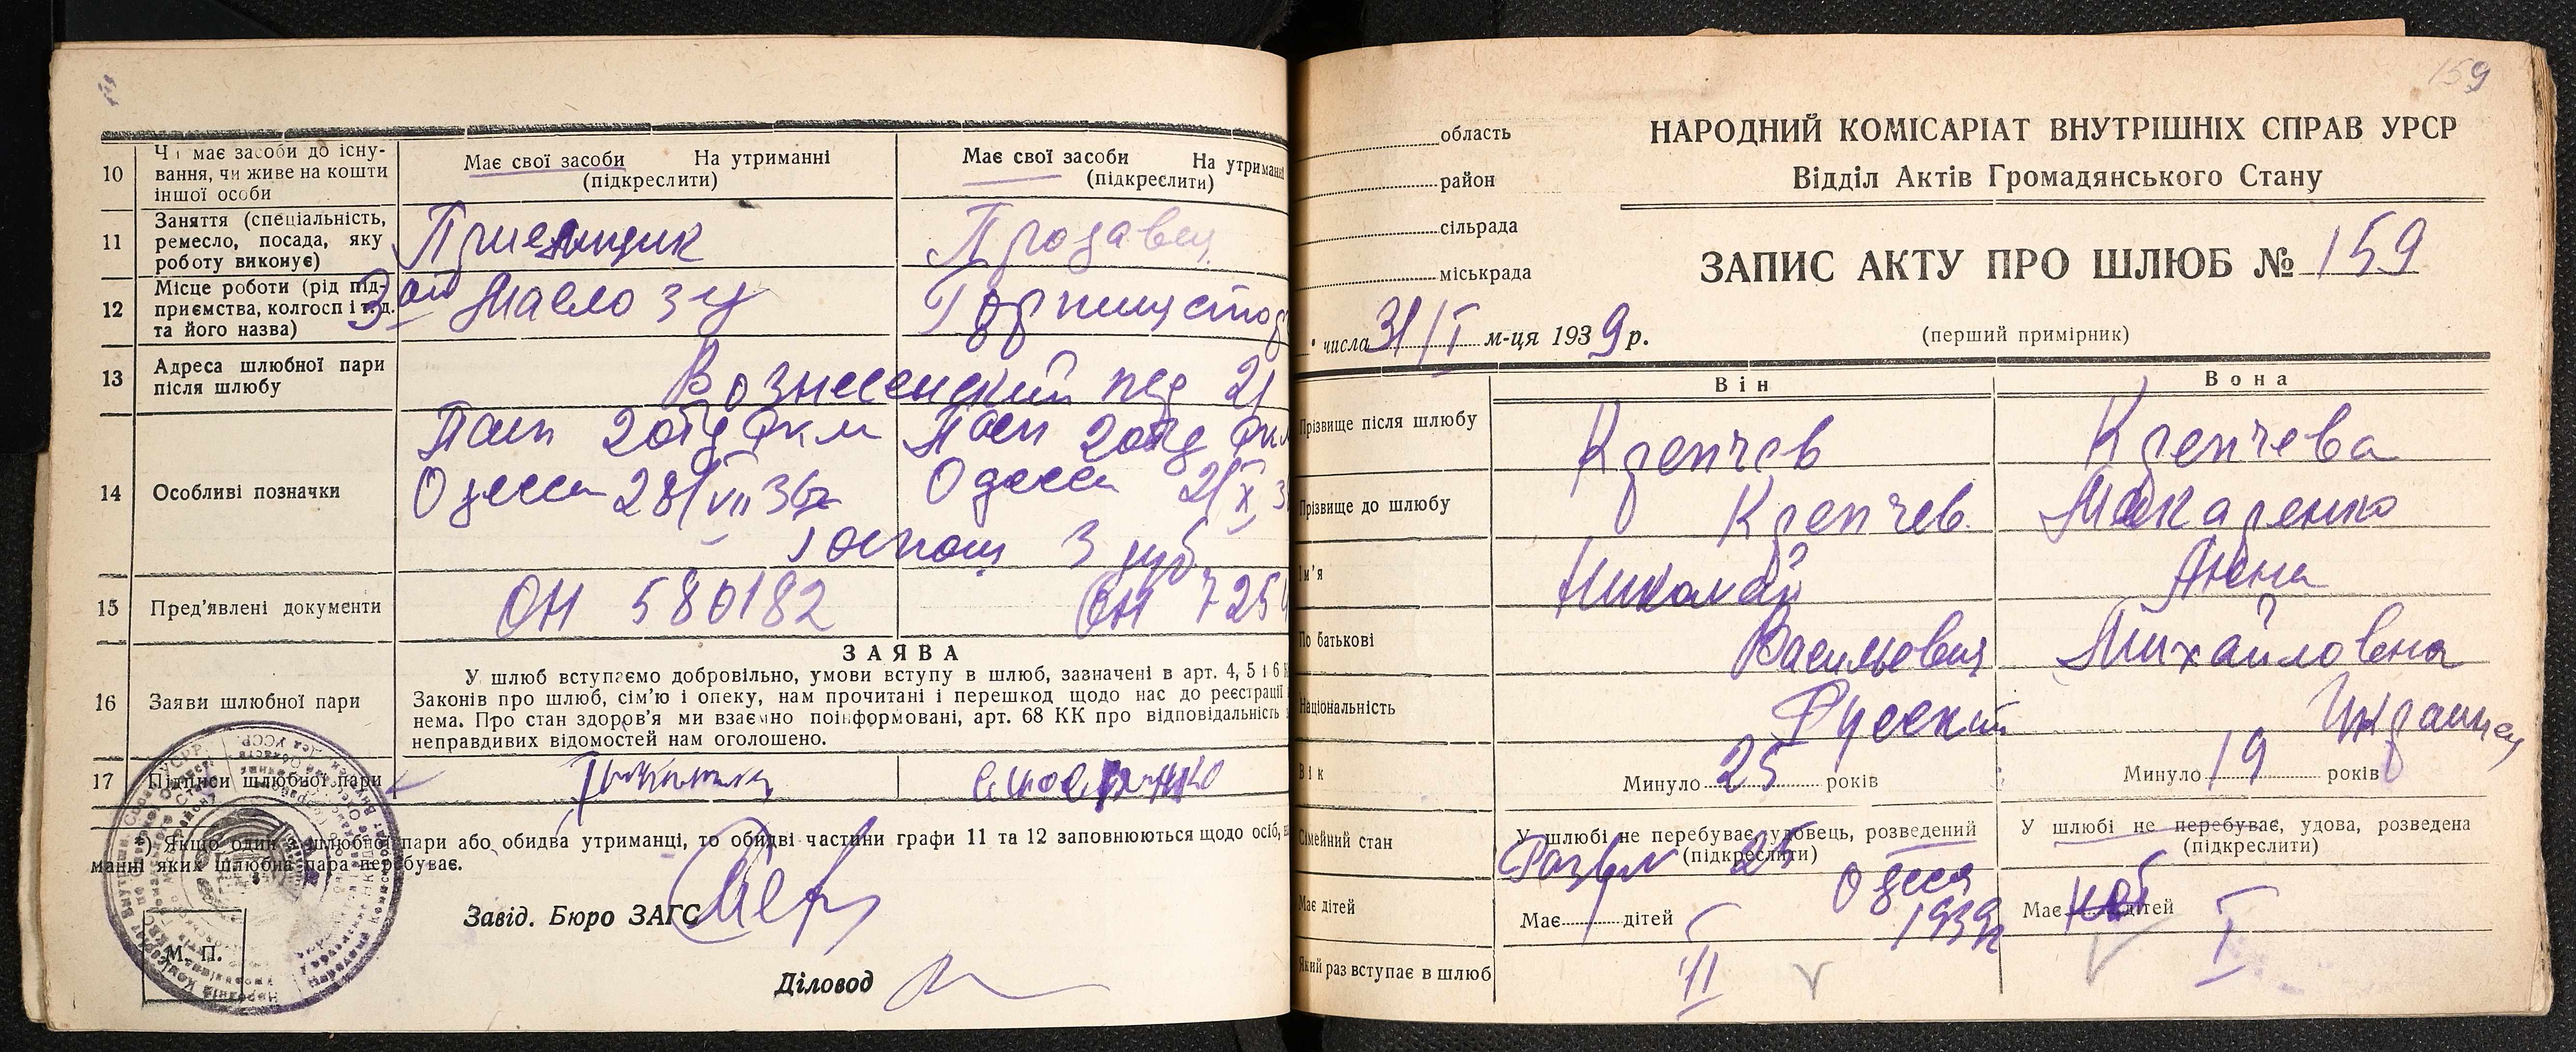 10 Чи має засоби до існу-
вання, чи живе на кошти
іншої особи
Має свої засоби На утриманні
(підкреслити)
Має свої засоби На утриманні
(підкреслити)
11 Заняття (спеціальність,
ремесло, посада, яку
роботу виконує)
Приемщик
Продавец
12 Місце роботи (рід під-
приємства, колгосп і т. д.
та його назва)
3 ой Масло з-д
13 Адреса шлюбної пари
після шлюбу
Вознесенский пер 21
14 Особливі позначки
Пасп 2 отд РКМ
Одесса 28/VII 36г
Пасп 2 отд РКМ
Одесса 21/X
Госпош 3 руб
15 Пред'явлені документи
ОН 580182
ОН 725
ЗАЯВА
16 Заяви шлюбної пари
У шлюб вступаємо добровільно, умови вступу в шлюб, зазначені в арт. 4, 5 і 6
Законів про шлюб, сім'ю і опеку, нам прочитані і перешкод щодо нас до реєстрації
нема. Про стан здоров'я ми взаємно поінформовані, арт. 68 КК про відповідальність
неправдивих відомостей нам оголошено.
17 Підписи шлюбної пари
) Якщо один з шлюбної пари або обидва утриманці, то обидві частини графи 11 та 12 заповнюються щодо осіб,
манні яких шлюбна пара перебуває.
Завід. Бюро ЗАГС
М. П.
Діловод
159
область
район
сільрада
міськрада
НАРОДНИЙ КОМІСАРІАТ ВНУТРІШНІХ СПРАВ УРСР
Відділ Актів Громадянського Стану
ЗАПИС АКТУ ПРО ШЛЮБ № 159
(перший примірник)
" числа 31/I м-ця 1939 р.
Він Вона
Прізвище після шлюбу Крепчев Крепчева
Прізвище до шлюбу Крепчев Макаренко
Ім'я Николай Анна
По батькові Васильевич Михайловна
Національність Русский Украинец
Вік Минуло 25 років Минуло 19 років
Сімейний стан
У шлюбі не перебуває, удовець, розведений
(підкреслити)
У шлюбі не перебуває, удова, розведена
(підкреслити)
Разв 25 Одесса
1939г
Має дітей Має дітей Має нет дітей
Який раз вступає в шлюб II I